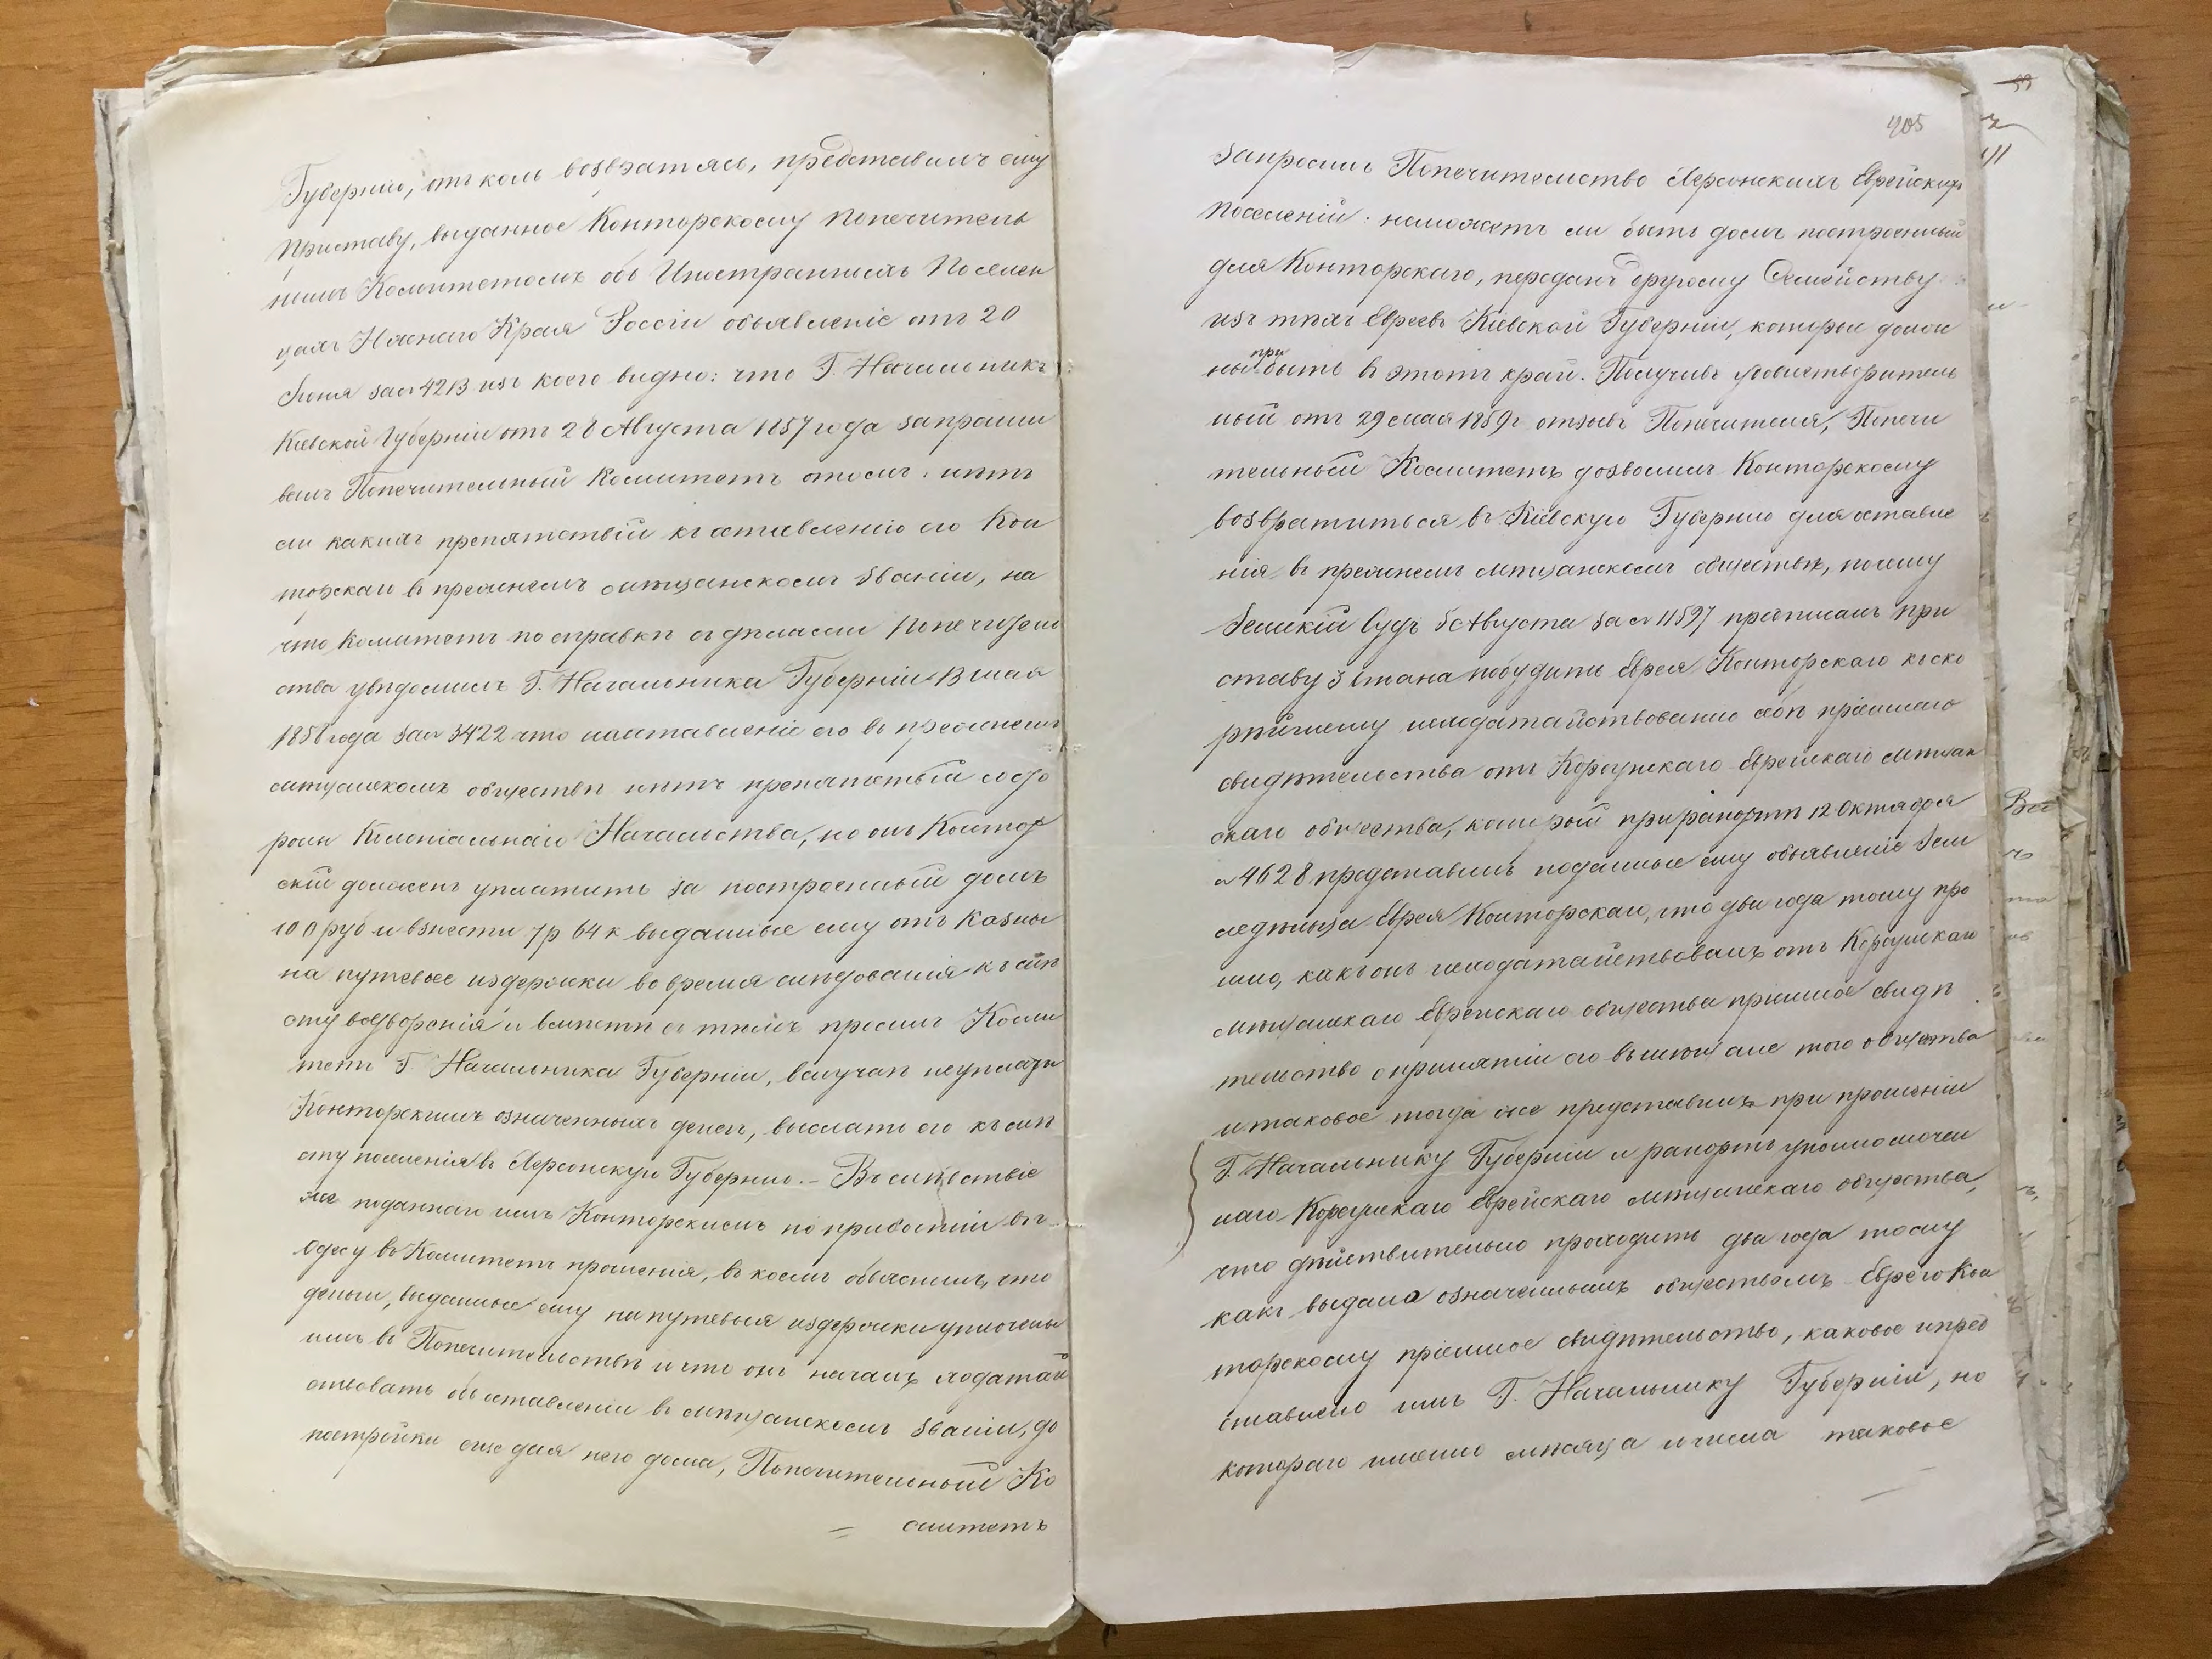 Губернію, отъ коль возвратясь, представилъ ему
приставу, выданное Конторскому Попечитель
нымъ Комитетомъ объ Иностранныхъ Поселен
цахъ Южнаго Края Россіи объявленіе отъ 20
Іюня за № 4213 изъ коего видно: что Г. Начальникъ
Кіевской Губерніи отъ 28 Августа 1857 года запраши
валъ Попечительный Комитетъ о томъ: нѣтъ
ли какихъ препятствій къ оставленію его Кон
торскаго въ прежнемъ мѣщанскомъ званіи, на
что Комитетъ по справкѣ съ дѣлами Попечитель
ства увѣдомилъ Г. Начальника Губерніи 13 мая
1858 года за № 3422 что на оставленіе его въ прежнемъ
мѣщанскомъ обществѣ нѣтъ препятствія со сто
роны Колоніальнаго Начальства, но онъ Контор
скій долженъ уплатить за построенный домъ
100 руб и взнести 7 р 64 к выданные ему отъ казны
на путевые издержки во время слѣдованія къ мѣ
сту водворенія и вмѣстѣ съ тѣмъ просилъ Коми
тетъ Г. Начальника Губерніи, въ случаѣ неуплаты
Конторскимъ означенныхъ денегъ, выслать его къ мѣ
сту поселенія въ Херсонскую Губернію. – Въ слѣдствіе
же поданнаго имъ Конторскимъ по прибытіи въ
Одесу въ Комитетъ прошенія, въ коемъ объяснилъ, что
деньги, выданные ему на путевыя издержки уплочены
имъ въ Попечительствѣ и что онъ началъ ходатай
ствовать объ оставленіи въ мѣщанскомъ званіи, до
постройки еще для него дома, Попечительный Ко
= омитетъ
405
запросилъ Попечительство Херсонскихъ Еврейскихъ
поселеній: неможетъ ли быть домъ построенный
для Конторскаго, переданъ другому Семейству
изъ тѣхъ Евреевъ Кіевской Губерніи, которые долж
при
ны быть въ этотъ край. Получивъ удовлетворитель
ный отъ 29 мая 1859 г отзывъ Попечителя, Попечи
тельный Комитетъ дозволилъ Конторскому
возвратиться въ Кіевскую Губернію для оставле
нія въ прежнемъ мѣщанскомъ обществѣ, почему
Земскій Судъ 5 Августа за № 11597 предписалъ при
ставу 3 стана побудить Еврея Конторскаго къ ско
рѣйшему исходатайствованію себѣ пріемнаго
свидѣтельства отъ Корсунскаго Еврейскаго мѣщан
скаго общества, который при рапортѣ 12 Октября
№ 4628 представилъ поданные ему объявленіе Зем
ледѣльца Еврея Конторскаго, что два года тому про
шло, какъ онъ исходатайствовалъ отъ Корсунскаго
мѣщанскаго Еврейскаго общества пріемное свидѣ
тельство о принятіи его въ мѣщане того общества
и таковое тогда же представилъ при прошеніи
Г. Начальнику Губерніи и рапортъ уполномочен
наго Корсунскаго Еврейскаго мѣщанскаго общества,
что дѣйствительно проходитъ два года тому
какъ выдано означеннымъ обществомъ Еврею Кон
торскому пріемное свидѣтельство, каковое и пред
ставлено имъ Г. Начальнику Губерніи, но
котораго именно мѣсяца и числа таковое